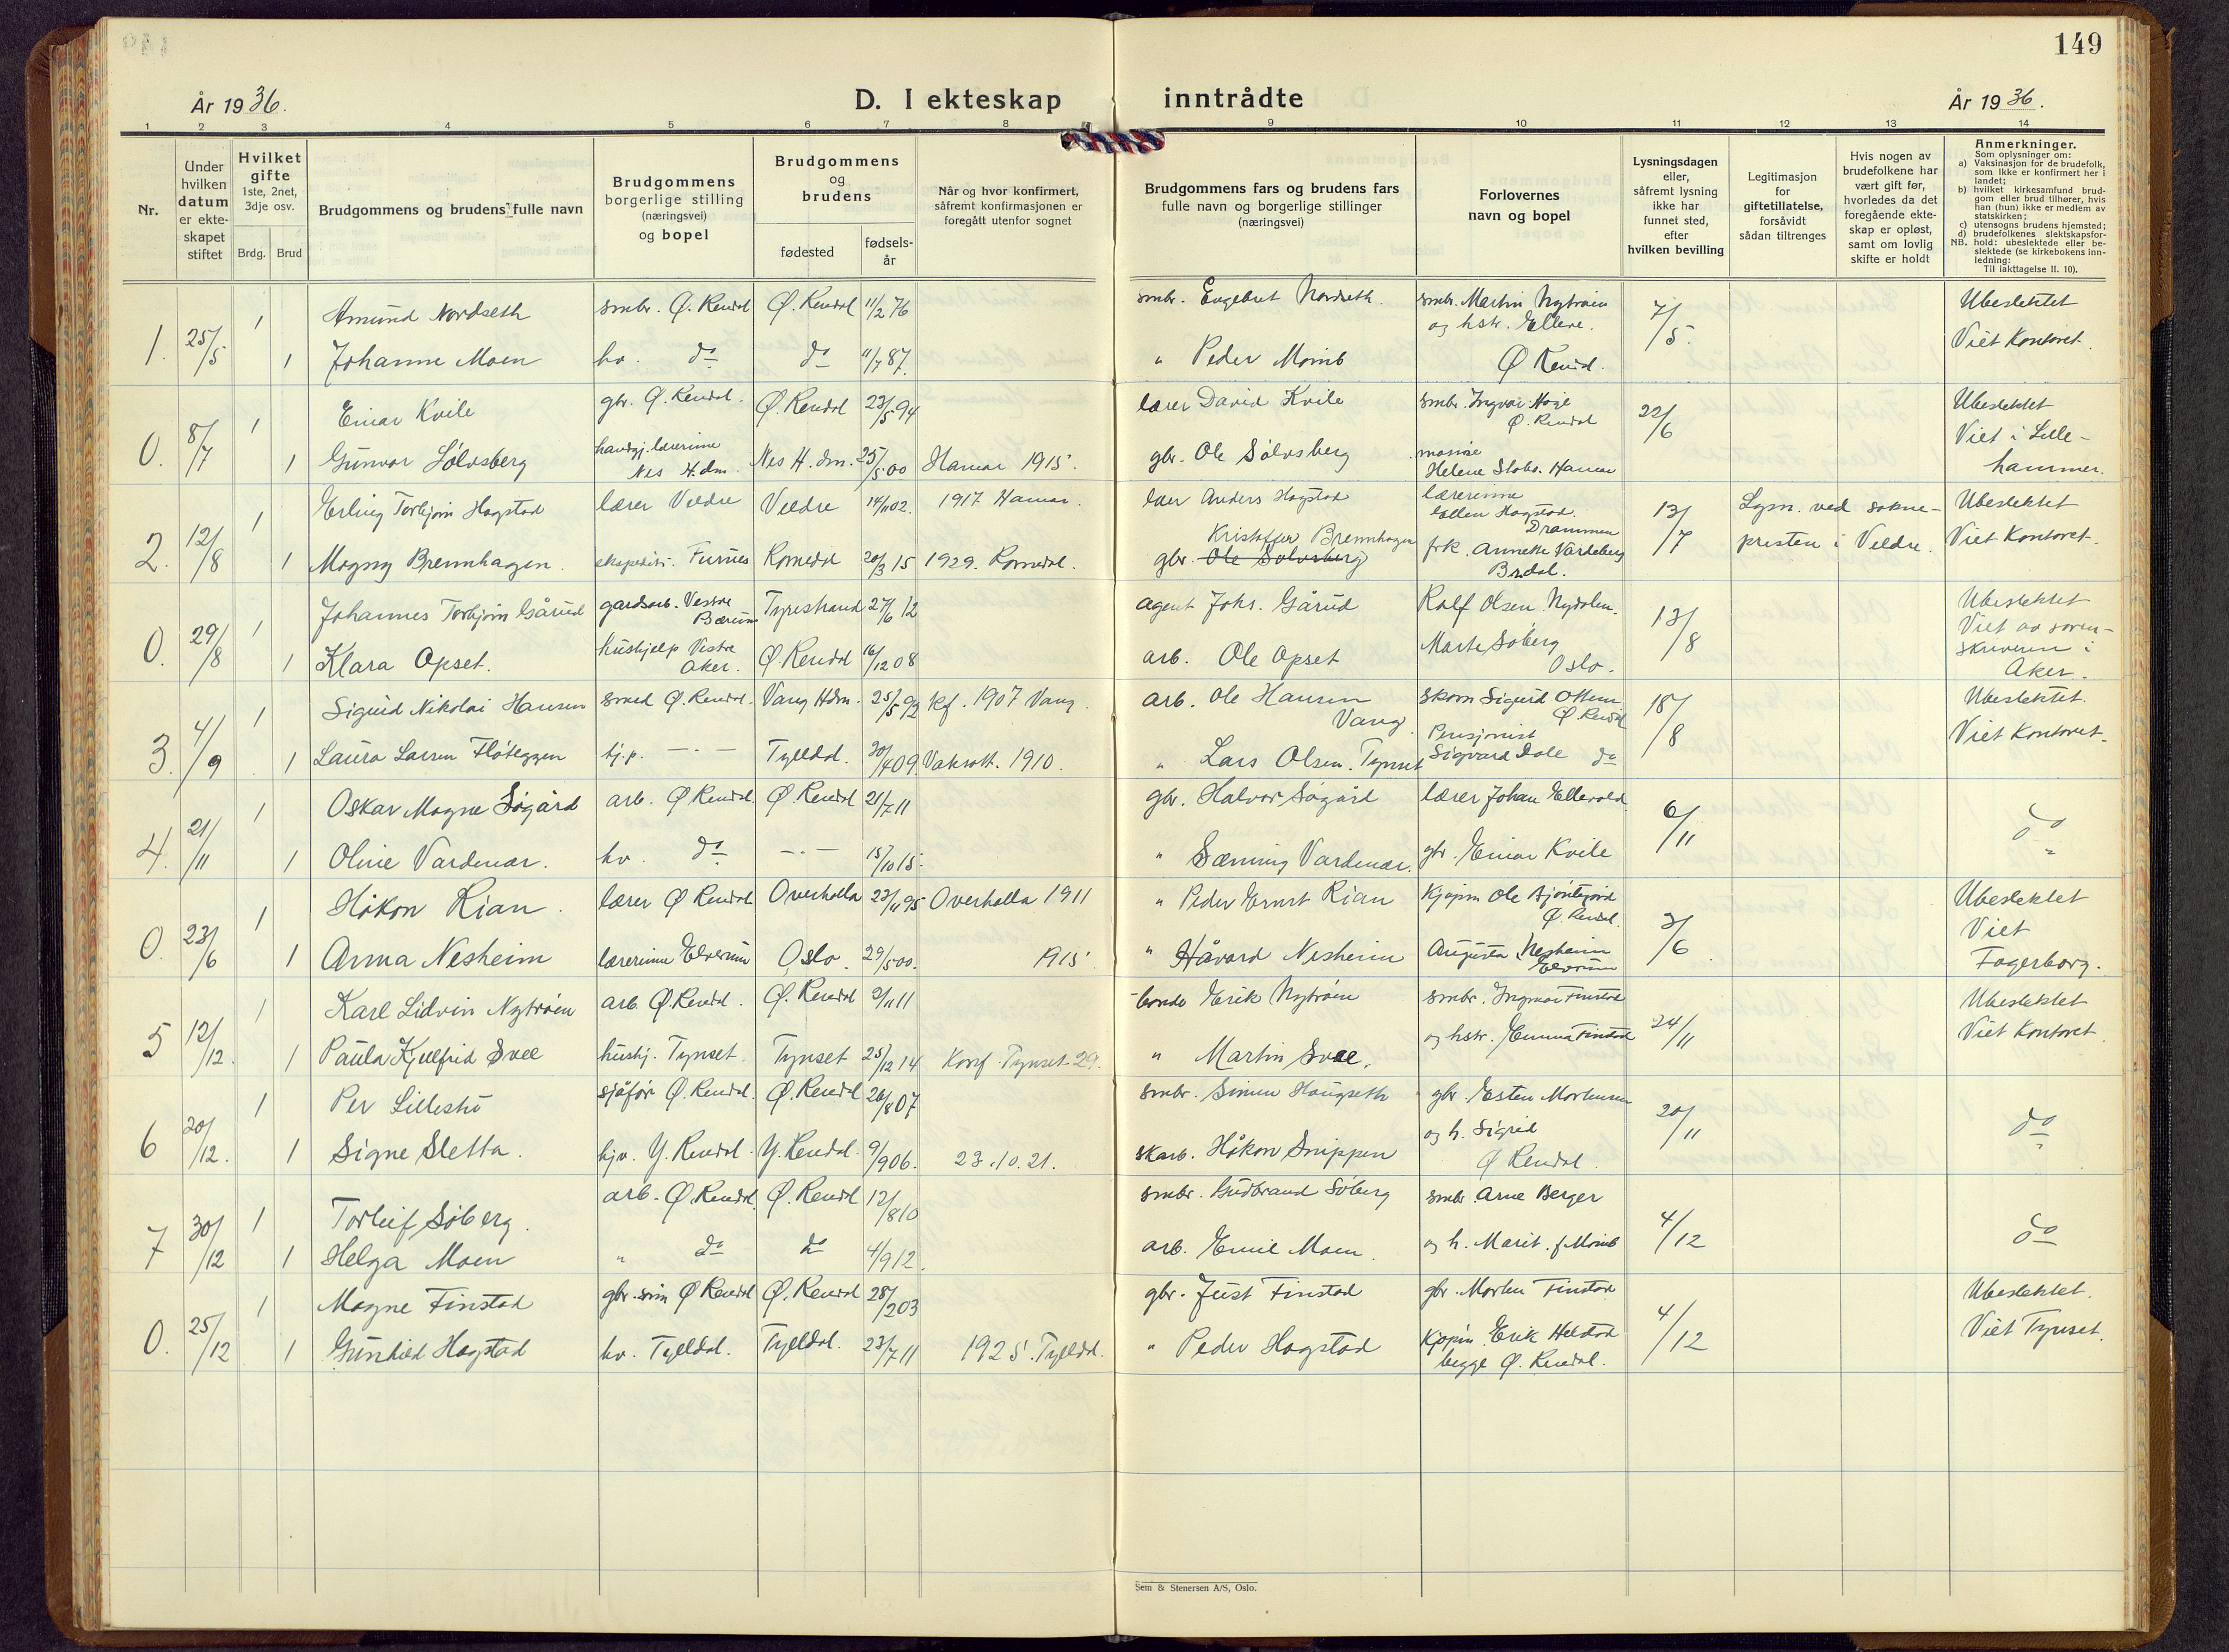 149
År 1936.
D. I ekteskap inntrådte
År 1936.
1 2 3 4 5 6 7 8 9 10 11 12 13 14
Nr.
Under hvilken datum er ekteskapet stiftet
Hvilket gifte 1ste, 2net, 3dje osv.
Brdg. Brud
Brudgommens og brudens fulle navn
Brudgommens borgerlige stilling (næringsvei) og bopel
Brudgommens og brudens
fødested
fødsels-år
Når og hvor konfirmert, såfremt konfirmasjonen er foregått utenfor sognet
Brudgommens fars og brudens fars fulle navn og borgerlige stillinger (næringsvei)
Forlovernes navn og bopel
Lysningsdagen eller, såfremt lysning ikke har funnet sted, efter hvilken bevilling
Legitimasjon for giftetillatelse, forsåvidt sådan tiltrenges
Hvis nogen av brudefolkene har vært gift før, hvorledes da det foregående ekteskap er opløst, samt om lovlig skifte er holdt
Anmerkninger.
Som oplysninger om:
a) Vaksinasjon for de brudefolk, som ikke er konfirmert her i landet;
b) hvilket kirkesamfund brudgom eller brud tilhører, hvis han (hun) ikke er medlem av statskirken;
c) utensogns brudens hjemsted;
d) brudefolkenes slektskapsforhold: ubeslektede eller beslektede (se kirkebokens innledning:
NB.
Til iakttagelse II. 10).
1. 25/5 1 Amund Nordseth smbr. Ø. Rendal Ø. Rendal 11/2 76 smbr. Engebret Nordseth. smbr. Martin Nytrøen og hstr. Ellene. 7/5. Ubeslektet
1 Johanne Moen hv. do do 11/7 87. " Peder Momb Ø Rend. Viet Kontoret.
0. 8/7 1 Einar Kvile gbr. Ø. Rendal. Ø. Rendal 23/5 94 lærer David Kvile smbr. Ingvar Ø. Rendal 22/6 Ubeslektet
1 Gunvor Sølvsberg handgj. lærerinne Nes H.dm. Nes H.dm. 25/5 00 Hamar 1915. gbr. Ole Sølvsberg Helene Hamar Viet i Lillehammer.
2. 12/8 1 Erling Torbjørn Hagstad lærer Veldre Veldre 14/11 02. 1917 Hamar. lær Anders Hagstad lærerinne Ellen Hagstad. Drammen 13/7 Lysn. ved sokne- Ubeslektet
1 Magny Brennhagen. ekspeditr. Furnes Romedal 20/3 15 1929. Romedal. gbr. Ole Sølvsberg Kristoffer Brennhagen frk. Annette Vardeberg Brdal. presten i Veldre Viet Kontoret.
0. 29/8 1 Johannes Torbjørn Gårud gardsarb. Vestre Bærum Tyristrand 27/6 12 agent Johs. Gårud Rolf Olsen Nydalen. 13/8 Ubeslektet
1 Klara Opset. hushjelp Vestre Aker. Ø Rendal 16/12 08 arb. Ole Opset Marte Søberg Oslo. Viet av sorenskriveren i Aker.
3. 4/9 1 Sigurd Nikolai Hansen smed Ø. Rendal. Vang Hdm. 25/5 92 kf. 1907 Vang. arb. Ole Hansen Vang. skom Sigurd Ottem Ø. Rendal 18/8 Ubeslektet.
1 Laura Larsen Fløteggen hj.p. —.— Tylldal. 30/4 09. 1910. " Lars Olsen. Tynset Pensjonist Sigvard Dale do Viet Kontoret.
4. 21/11 1 Oskar Magne Søgård arb. Ø Rendal Ø. Rendal 21/7 11 gbr. Halvor Søgård lærer Johan Ellevold 6/11 do
1 Oline Vardenær. hv. do —.— 15/10 15. " Sæming Vardenær. gbr. Einar Kvile
0. 23/6 1 Håkon Rian. lærer Ø Rendal Overhalla 23/11 95 Overhalla 1911 " Peder Ernst Rian Kjøpm Ole Bjøntegård Ø. Rendal 3/6. Ubeslektet
1 Anna Nesheim lærerinne Elverum Oslo. 29/5 00. 1915 " Håvard Nesheim Augusta Nesheim Elverum Viet Fagerborg.
5 12/12. 1 Karl Lidvin Nytrøen arb. Ø. Rendal. Ø. Rendal 3/11 11 bonde Erik Nytrøen smbr. Ingmar Finstad 24/11 Ubeslektet
1 Paula Kjellfrid Svee hushj. Tynset Tynset 25/12 14 Konf. Tynset 29. " Martin Svee. og hstr. Emma Finstad Viet Kontoret
6 20/12. 1 Per Lillestu sjåfør Ø. Rendal. Ø. Rendal 26/8 07 smbr. Simen Haugseth gbr. Esten Mortensen 20/11 do
1 Signe Sletta. hjv. Y. Rendal. Y. Rendal. 9/9 06. 23.10.21. skarb. Håkon Snippen og h. Sigrid Ø Rendal.
7 30/12 1 Torleif Søberg. arb. Ø Rendal. Ø. Rendal 12/8 10 smbr. Gudbrand Søberg smbr. Arne Berger 4/12 do
1 Helga Moen " do do 4/9 12. arb. Emil Moen. og h. Marit. f. Momb
0. 25/12 1 Magne Finstad gbr. sønn Ø Rendal Ø. Rendal 28/2 03 gbr. Just Finstad gbr. Morten Finstad 4/12 Ubeslektet.
1 Gunhild Hagstad hv. Tylldal. Tylldal. 23/7 11 1925. Tylldal. " Peder Hagstad Kjøpm. Erik Helstad begge Ø. Rendal. Viet Tynset.
Sem & Stenersen A/S, Oslo.